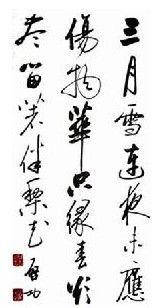 三月雪連夜未應
傷物華只緣春欲
盡留著伴梨花 啟功